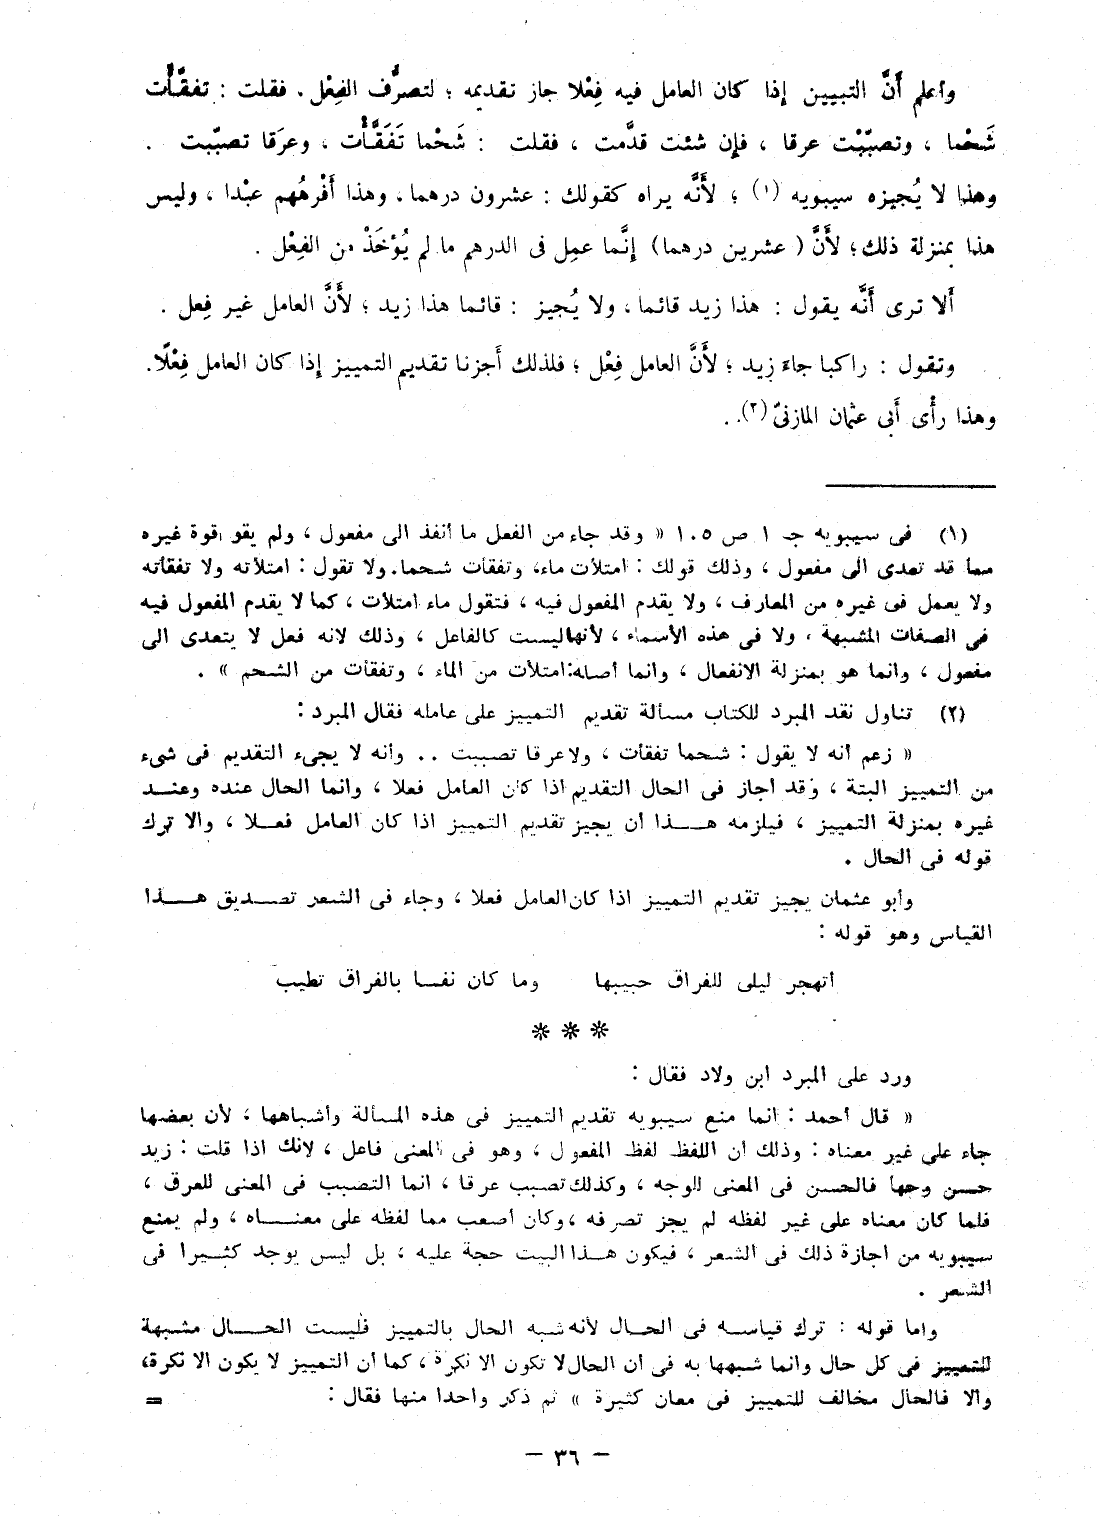 واعلم أَنَّ التبيين إِذا كان العامل فيه فِعْلا جاز تقديمه ؛ لتصرُّف الفِعْل . فقلت : تفقَّأْت
شَحْما ، وتصبّبْت عرقا ، فإِن شئت قدَّمت ، فقلت : شَحْما تَفَقَّأْت ، وعرَقا تصبّبت .
وهذا لا يُجيزه سيبويه (١) ؛ لأَنَّه يراه كقولك : عشرون درهما . وهذا أَفْرهُهم عبْدا ، وليس
هذا بمنزلة ذلك ؛ لأَنَّ ( عشرين درهما ) إِنَّما عمِل فى الدرهم ما لم يُؤخَذْ من الفِعْل .
أَلا ترى أَنَّه يقول : هذا زيد قائما ، ولا يُجيز : قائما هذا زيد ؛ لأَنَّ العامل غير فِعل .
وتقول : راكبا جاءَ زيد ؛ لأَنَّ العامل فِعْل ؛ فلذلك أَجزنا تقديم التمييز إِذا كان العامل فِعْلًا .
وهذا رأْى أَبى عثمان المازنىّ (٢) .
(١) فى سيبويه جـ ١ ص ١٠٥ « وقد جاء من الفعل ما أنفذ الى مفعول ، ولم يقو قوة غيره
مما قد تعدى الى مفعول ، وذلك قولك : امتلأت ماء ، وتفقأت شحما . ولا تقول : امتلأته ولا تفقأته
ولا يعمل فى غيره من المعارف ، ولا يقدم المفعول فيه ، فتقول ماء امتلأت ، كما لا يقدم المفعول فيه
فى الصفات المشبهة ، ولا فى هذه الأسماء ، لأنها ليست كالفاعل ، وذلك لأنه فعل لا يتعدى الى
مفعول ، وانما هو بمنزلة الانفعال ، وانما أصله : امتلأت من الماء ، وتفقأت من الشحم » .
(٢) تناول نقد المبرد للكتاب مسألة تقديم التمييز على عامله فقال المبرد :
« زعم أنه لا يقول : شحما تفقأت ، ولا عرقا تصببت . . وأنه لا يجىء التقديم فى شىء
من التمييز البتة ، وقد أجاز فى الحال التقديم اذا كان العامل فعلا ، وانما الحال عنده وعنـد
غيره بمنزلة التمييز ، فيلزمه هـــذا أن يجيز تقديم التمييز اذا كان العامل فعـلا ، والا ترك
قوله فى الحال .
وأبو عثمان يجيز تقديم التمييز اذا كان العامل فعلا ، وجاء فى الشعر تصـديق هـــذا
القياس وهو قوله :
أتهجر ليلى للفراق حبيبها     وما كان نفسا بالفراق تطيب
***
ورد على المبرد ابن ولاد فقال :
« قال أحمد : انما منع سيبويه تقديم التمييز فى هذه المسألة وأشباهها ، لأن بعضها
جاء على غير معناه : وذلك أن اللفظ لفظ المفعول ، وهو فى المعنى فاعل ، لأنك اذا قلت : زيد
حسن وجها فالحسن فى المعنى للوجه ، وكذلك تصبب عرقا ، انما التصبب فى المعنى للعرق ،
فلما كان معناه على غير لفظه لم يجز تصرفه ، وكان أصعب مما لفظه على معنـاه ، ولم يمنع
سيبويه من اجازة ذلك فى الشعر ، فيكون هـذا البيت حجة عليه ، بل ليس يوجد كثـيرا فى
الشعر .
واما قوله : ترك قياسـه فى الحـال لأنه شبه الحال بالتمييز فليست الحـــال مشبهة
للتمييز فى كل حال وانما شبهها به فى أن الحال لا تكون الا نكرة ، كما أن التمييز لا يكون الا نكرة ،
والا فالحال مخالف للتمييز فى معان كثيرة » ثم ذكر واحدا منها فقال :     =
— ٣٦ —